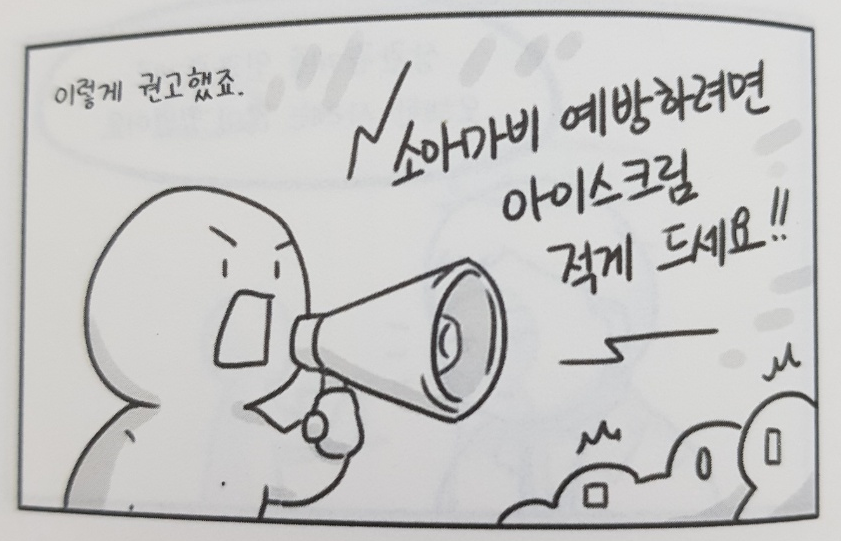 이렇게 권고했죠.
소아마비 예방하려면
아이스크림
적게 드세요!!